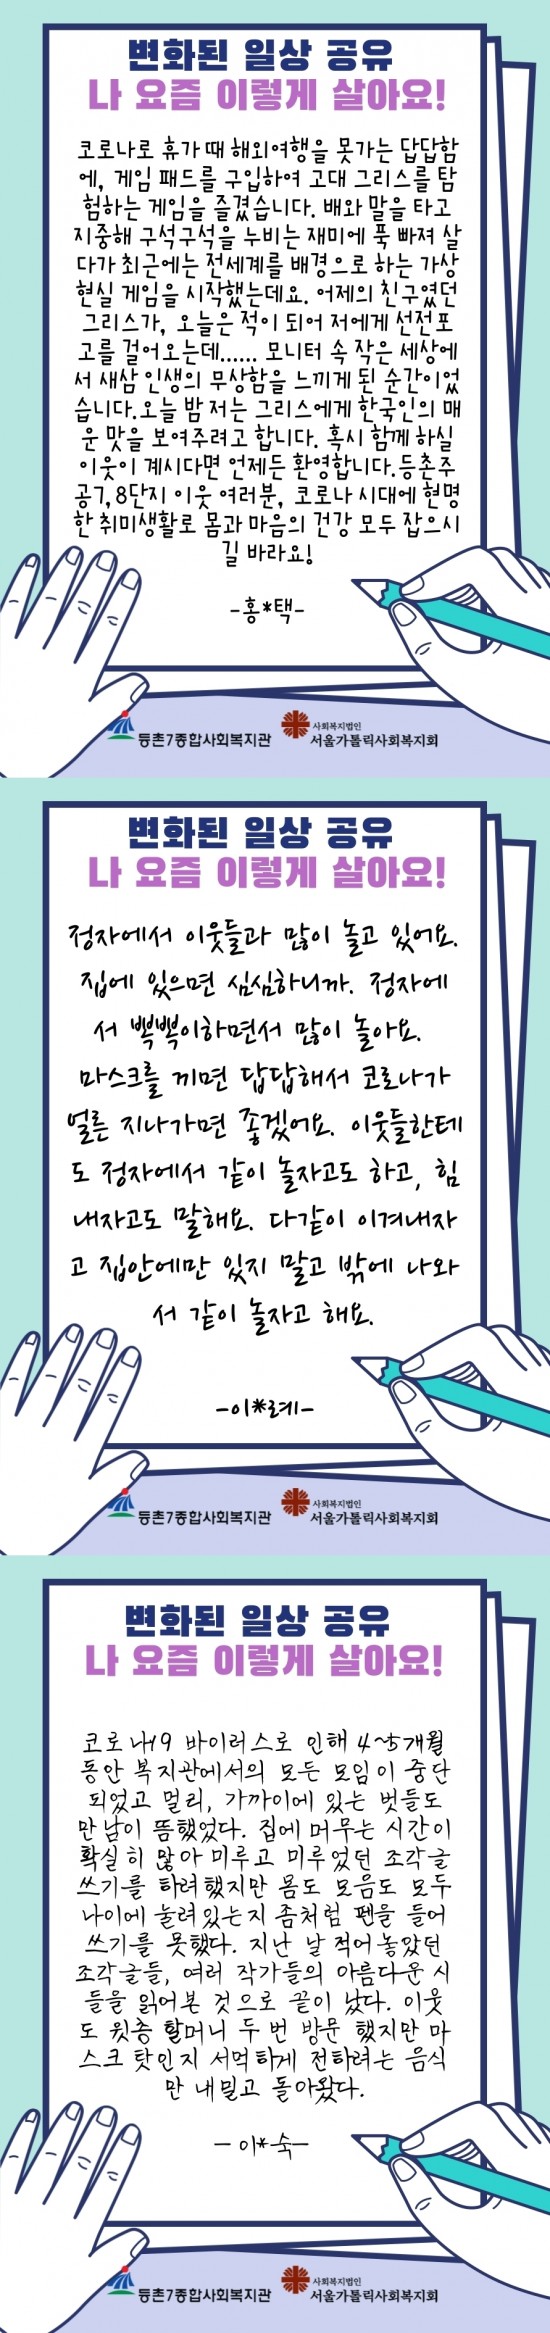 변화된 일상 공유
나 요즘 이렇게 살아요!
코로나로 휴가 때 해외여행을 못가는 답답함
에, 게임 패드를 구입하여 고대 그리스를 탐
험하는 게임을 즐겼습니다. 배와 말을 타고
지중해 구석구석을 누비는 재미에 푹 빠져 살
다가 최근에는 전세계를 배경으로 하는 가상
현실 게임을 시작했는데요. 어제의 친구였던
그리스가, 오늘은 적이 되어 저에게 선전포
고를 걸어오는데...... 모니터 속 작은 세상에
서 새삼 인생의 무상함을 느끼게 된 순간이었
습니다.오늘 밤 저는 그리스에게 한국인의 매
운 맛을 보여주려고 합니다. 혹시 함께 하실
이웃이 계시다면 언제든 환영합니다.등촌주
공7,8단지 이웃 여러분, 코로나 시대에 현명
한 취미생활로 몸과 마음의 건강 모두 잡으시
길 바라요!
-홍*택-
등촌7종합사회복지관
사회복지법인
서울가톨릭사회복지회
변화된 일상 공유
나 요즘 이렇게 살아요!
정자에서 이웃들과 많이 놀고 있어요.
집에 있으면 심심하니까. 정자에
서 뽁뽁이하면서 많이 놀아요.
마스크를 끼면 답답해서 코로나가
얼른 지나가면 좋겠어요. 이웃들한테
도 정자에서 같이 놀자고도 하고, 힘
내자고도 말해요. 다같이 이겨내자
고 집안에만 있지 말고 밖에 나와
서 같이 놀자고 해요.
-이*례-
등촌7종합사회복지관
사회복지법인
서울가톨릭사회복지회
변화된 일상 공유
나 요즘 이렇게 살아요!
코로나19 바이러스로 인해 4~5개월
동안 복지관에서의 모든 모임이 중단
되었고 멀리, 가까이에 있는 벗들도
만남이 뜸했었다. 집에 머무는 시간이
확실히 많아 미루고 미루었던 조각글
쓰기를 하려했지만 몸도 모음도 모두
나이에 눌려있는지 좀처럼 펜을 들어
쓰기를 못했다. 지난 날 적어놓았던
조각글들, 여러 작가들의 아름다운 시
들을 읽어본 것으로 끝이 났다. 이웃
도 윗층 할머니 두 번 방문 했지만 마
스크 탓인지 서먹하게 전하려는 음식
만 내밀고 돌아왔다.
- 이*숙-
등촌7종합사회복지관
사회복지법인
서울가톨릭사회복지회